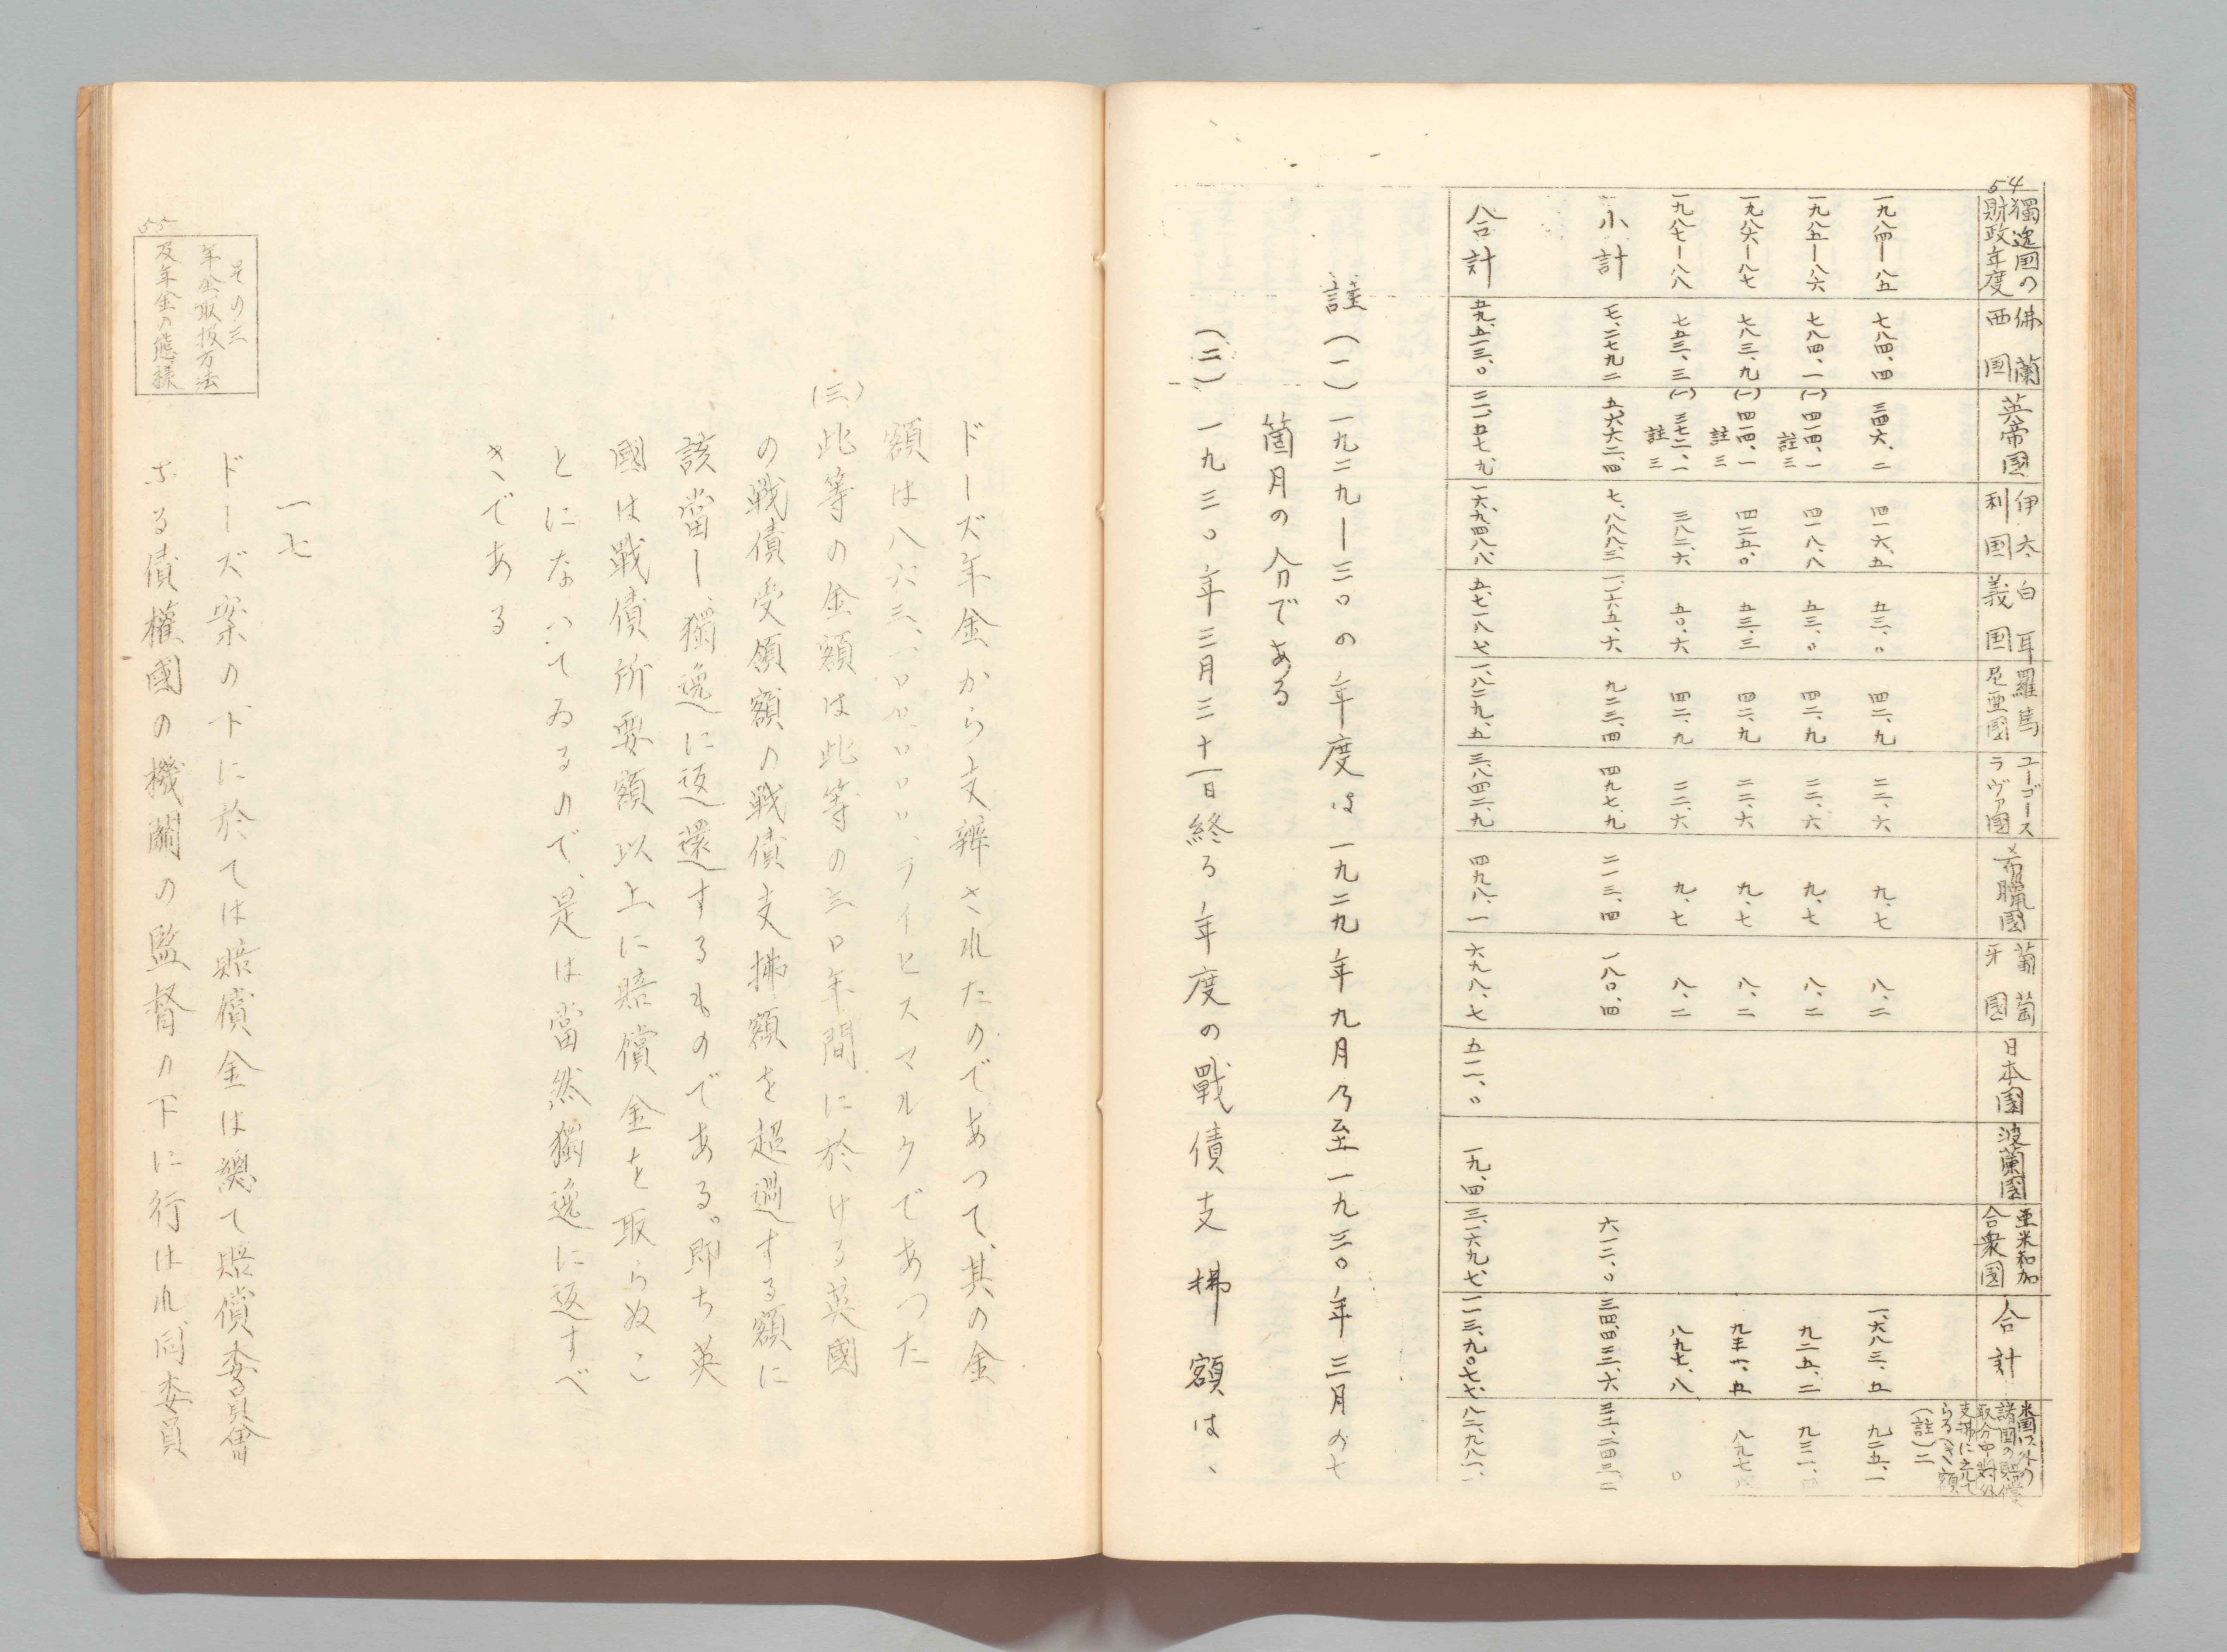 54
獨逸国の
財政年度
佛蘭
西国
英帝國
伊太
利国
白耳
義国
羅馬
尼亜國
ユーゴース
ラヴァ國
希臘國
葡萄
牙國
日本國
波蘭国
亜米利加
合衆國
合計
米国以外の
諸国の賠償
取分中対外
支拂に充て
らるべき額
(註)二
一九八四ー八五 七八四、四 三四六、二 四一六、五 五三、〇 四二、九 二二、六 九、七 八、二 一、六八三、五 九二五、一
一九八五ー八六 七八四、一 (一)四一四、一 註三 四一八、八 五三、〇 四二、九 二二、六 九、七 八、二 九二五、二
一九八六ー八七 七八三、九 (一)四一四、一 註三 四二五、〇 五三、三 四二、九 二二、六 九、七 八、二
一九八七ー八八 七五三、三 (一)三七二、一 註三 三八二、六 五〇、六 四二、九 二二、六 九、七 八、二 八九七、八 〇
小計 九二三、四 四九七、九 二一三、四 一八〇、四 六一二、〇
合計 四九八、一 六九八、七 五一一、〇 一九、四
註(一)一九二九ー三〇の年度は一九二九年九月乃至一九三〇年三月の七
箇月の分である
(二)一九三〇年三月三十一日終る年度の戰債支拂額は、
ドーズ年金から支辨されたのであつて、其の金
額は八六三、一〇〇、〇〇〇、ライヒスマルクであつた
(三)此等の金額は此等の三〇年間に於ける英國
の戰債受領額の戰債支拂額を超過する額に
該當し、獨逸に返還するものである。即ち英
國は戰債所要額以上に賠償金を取らぬこ
とになつてゐるので、是は當然獨逸に返すべ
きである
55
その三
年金取扱方法
及年金の態様
一七
ドーズ案の下に於ては賠償金は總て賠償委員會
なる債權國の機關の監督の下に行はれ、同委員